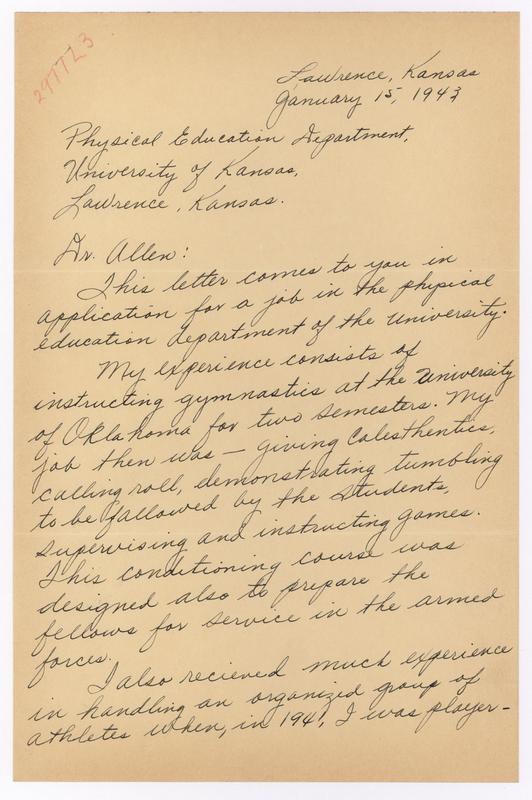 297723
Lawrence, Kansas
January 15, 1943
Physical Education Department,
University of Kansas,
Lawrence, Kansas.
Dr. Allen:
This letter comes to you in
application for a job in the physical
education department of the University.
My experience consists of
instructing gymnastics at the University
of Oklahoma for two semesters. My
job then was — giving Calesthentics,
calling roll, demonstrating tumbling
to be fallowed by the students,
supervising and instructing games.
This conditioning course was
designed also to prepare the
fellows for service in the armed
forces.
I also recieved much experience
in handling an organized group of
athletes when, in 1941, I was player-